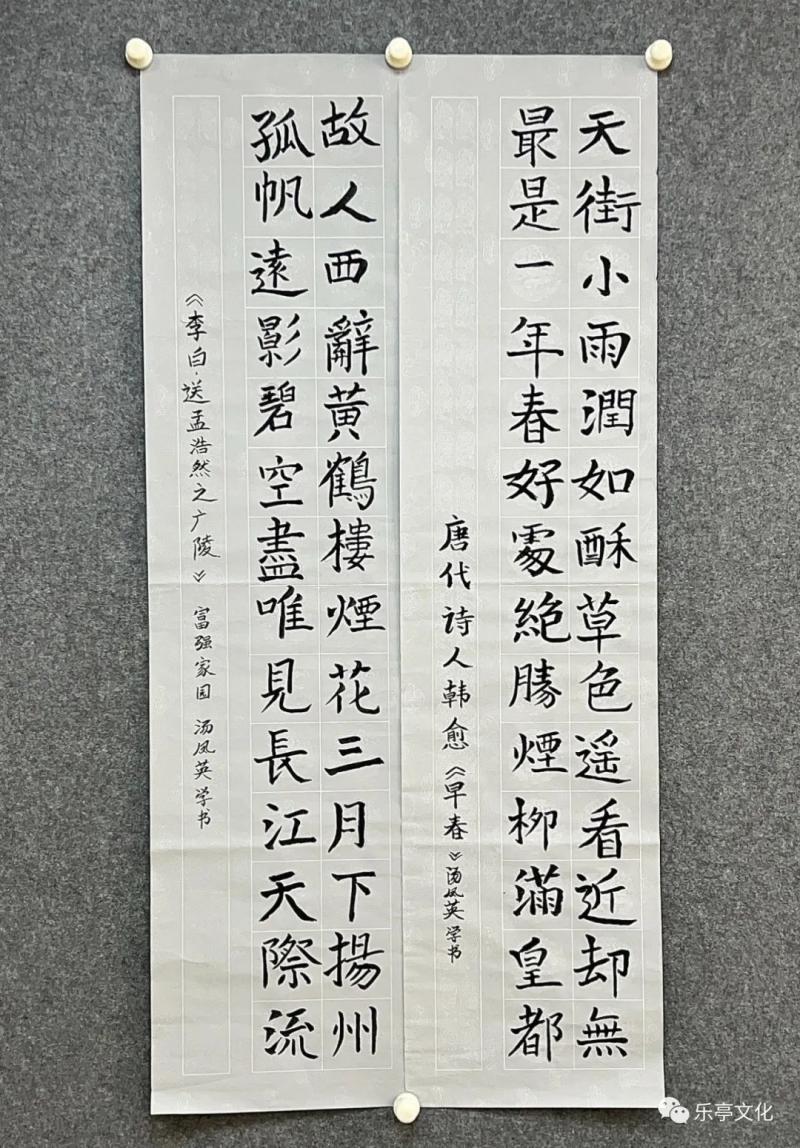 天街小雨潤如酥草色遥看近却無
最是一年春好處絶勝煙柳滿皇都
唐代诗人韩愈《早春》汤凤英学书
故人西辭黄鶴樓煙花三月下揚州
孤帆遠影碧空盡唯見長江天際流
《李白·送孟浩然之广陵》富强家园 汤凤英学书
乐亭文化